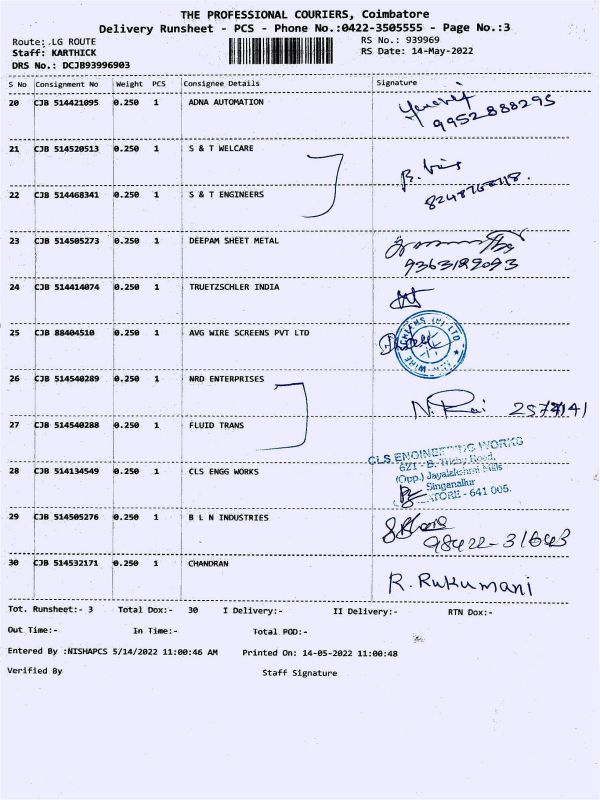 THE PROFESSIONAL COURIERS, Coimbatore
Delivery Runsheet - PCS - Phone No.:0422-3505555 - Page No.:3
Route: LG ROUTE
RS No.: 939969
Staff: KARTHICK
RS Date: 14-May-2022
DRS No.: DCJB93996903
S No Consignment No Weight PCS Consignee Details Signature
20 CJB 514421095 0.250 1 ADNA AUTOMATION
9952888295
21 CJB 514520513 0.250 1 S & T WELCARE
22 CJB 514468341 0.250 1 S & T ENGINEERS
23 CJB 514505273 0.250 1 DEEPAM SHEET METAL
9363189093
24 CJB 514414074 0.250 1 TRUETZSCHLER INDIA
25 CJB 88404510 0.250 1 AVG WIRE SCREENS PVT LTD
26 CJB 514540289 0.250 1 NRD ENTERPRISES
27 CJB 514540288 0.250 1 FLUID TRANS
CLS ENGINEERING WORKS
621 - B, Trichy Road,
28 CJB 514134549 0.250 1 CLS ENGG WORKS
(Opp.) Jayalakshmi Mills
Singanallur
641 005.
29 CJB 514505276 0.250 1 B L N INDUSTRIES
98422-31643
30 CJB 514532171 0.250 1 CHANDRAN
R. Rukumani
Tot. Runsheet:- 3 Total Dox:- 30 I Delivery:- II Delivery:- RTN Dox:-
Out Time:- In Time:- Total POD:-
Entered By :NISHAPCS 5/14/2022 11:00:46 AM Printed On: 14-05-2022 11:00:48
Verified By Staff Signature